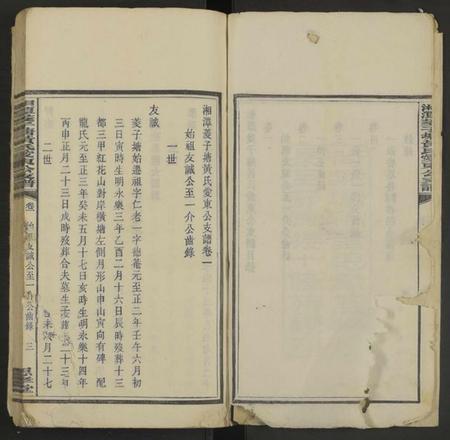 湘潭菱子塘黃氏愛東公支譜卷一
始祖友誠公至一介公齒錄
一世
友誠
菱子塘始遷祖字仁老一字德菴元至正二年壬午六月初
三日寅時生明永樂三年乙酉二月十六日辰時歿葬十三
都三甲紅花山對岸橫塘左側月形山申山寅向有碑 配
龍氏元至正三年癸未五月十七日亥時生明永樂十四年
丙申正月二十三日戌時歿葬合夫墓生子
二世
未 月二十七
友誠公至一介公齒錄 三